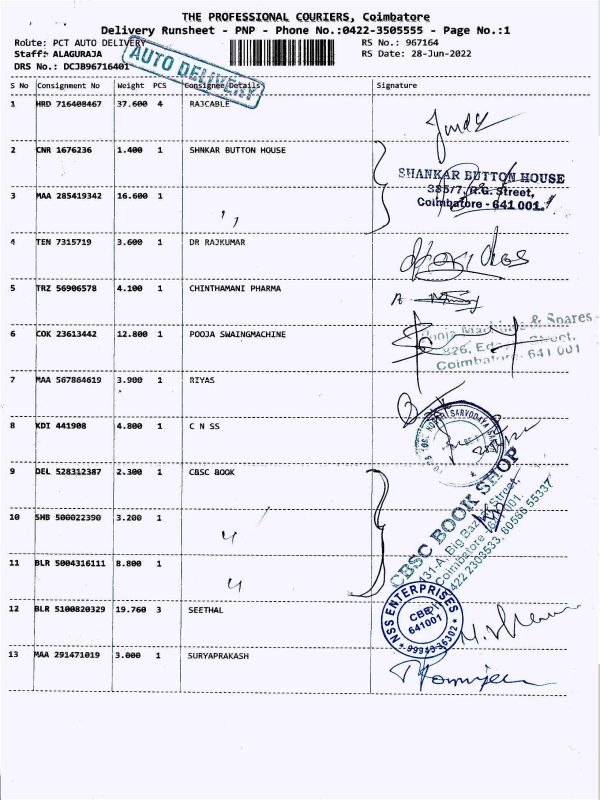 THE PROFESSIONAL COURIERS, Coimbatore
Delivery Runsheet - PNP - Phone No.:0422-3505555 - Page No.:1
Route: PCT AUTO DELIVERY RS No.: 967164
Staff: ALAGURAJA RS Date: 28-Jun-2022
DRS No.: DCJB96716401
AUTO DELIVERY
S No Consignment No Weight PCS Consignee Details Signature
1 HRD 716408467 37.600 4 RAJCABLE
2 CNR 1676236 1.400 1 SHNKAR BUTTON HOUSE
SHANKAR BUTTON HOUSE
385/7, R.G. Street,
Coimbatore - 641 001.
3 MAA 285419342 16.600 1 ,,
4 TEN 7315719 3.600 1 DR RAJKUMAR
5 TRZ 56906578 4.100 1 CHINTHAMANI PHARMA
6 COK 23613442 12.800 1 POOJA SWAINGMACHINE
Pooja & Spares
Street,
641 001
7 MAA 567864619 3.900 1 RIYAS
8 KDI 441908 4.800 1 C N SS
SARVODAYA
9 DEL 528312387 2.300 1 CBSC BOOK
CBSC BOOK SHOP
431-A, Big Bazaar Street,
Coimbatore - 641 001.
0422 2303533, 60566 55337
10 SHB 500022390 3.200 1 "
11 BLR 5004316111 8.800 1 "
12 BLR 5100820329 19.760 3 SEETHAL
NSS ENTERPRISES
CBE
641001
* 99943 36302 *
13 MAA 291471019 3.000 1 SURYAPRAKASH